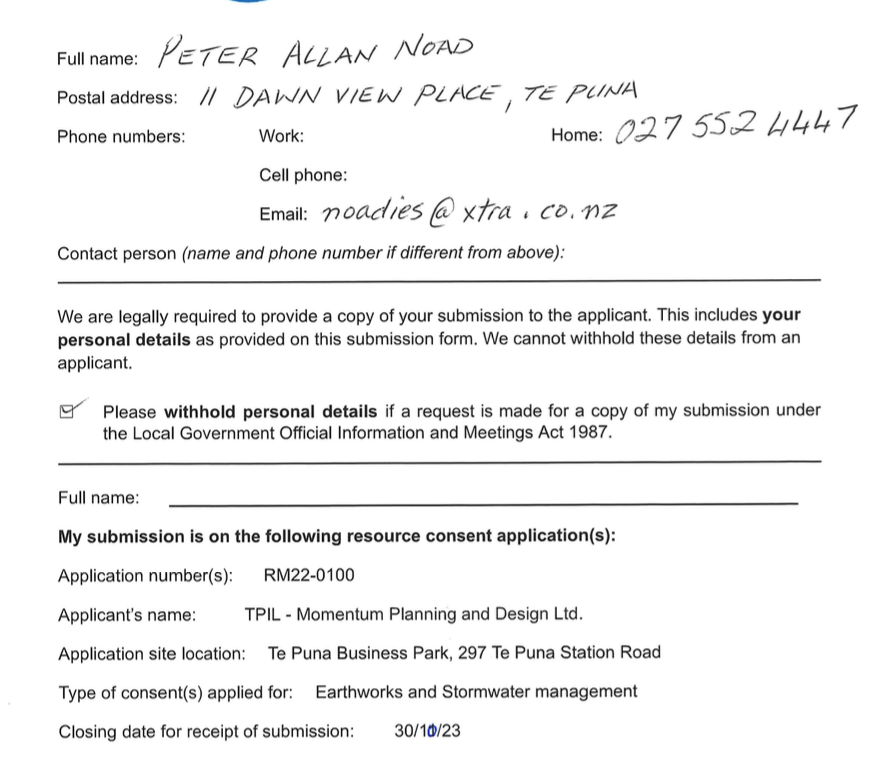 Full name: PETER ALLAN NOAD
Postal address: 11 DAWN VIEW PLACE, TE PUNA
Phone numbers: Work: Home: 027 552 4447
Cell phone:
Email: noadies@xtra.co.nz
Contact person (name and phone number if different from above):
We are legally required to provide a copy of your submission to the applicant. This includes your
personal details as provided on this submission form. We cannot withhold these details from an
applicant.
Please withhold personal details if a request is made for a copy of my submission under
the Local Government Official Information and Meetings Act 1987.
Full name:
My submission is on the following resource consent application(s):
Application number(s): RM22-0100
Applicant's name: TPIL - Momentum Planning and Design Ltd.
Application site location: Te Puna Business Park, 297 Te Puna Station Road
Type of consent(s) applied for: Earthworks and Stormwater management
Closing date for receipt of submission: 30/10/23